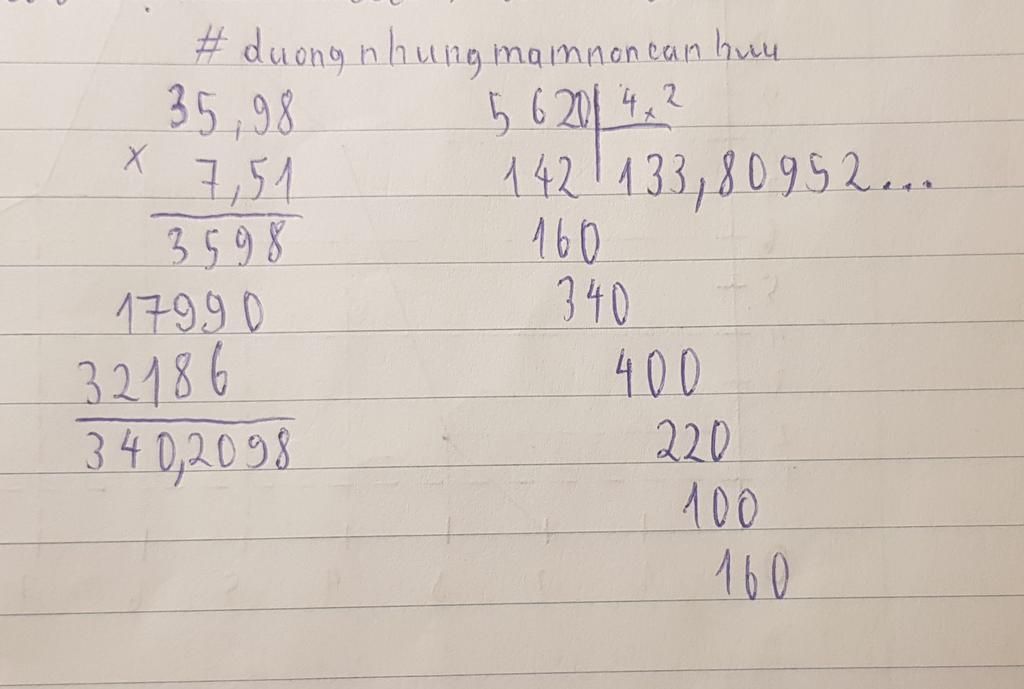 # duongnhungmamnoncanhuu
35,98
x 7,51
3598
17990
32186
340,2098
5 620 4,2
142 133,80952...
160
340
400
220
100
160